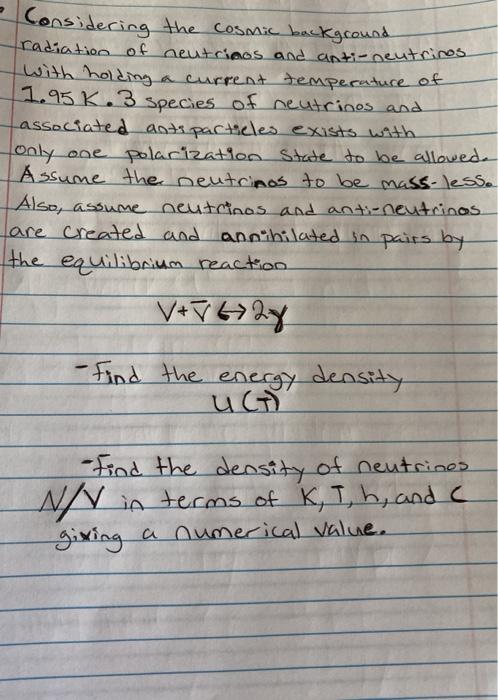 Considering the cosmic background
radiation of neutrinos and anti-neutrinos
with holding a current temperature of
1.95 K. 3 species of neutrinos and
associated antiparticles exists with
only one polarization state to be allowed.
Assume the neutrinos to be mass-less.
Also, assume neutrinos and anti-neutrinos
are created and annihilated in pairs by
the equilibrium reaction
ν+ν̅ ↔ 2γ
- find the energy density
U(T)
- find the density of neutrinos
N/V in terms of K, T, h, and C
giving a numerical value.